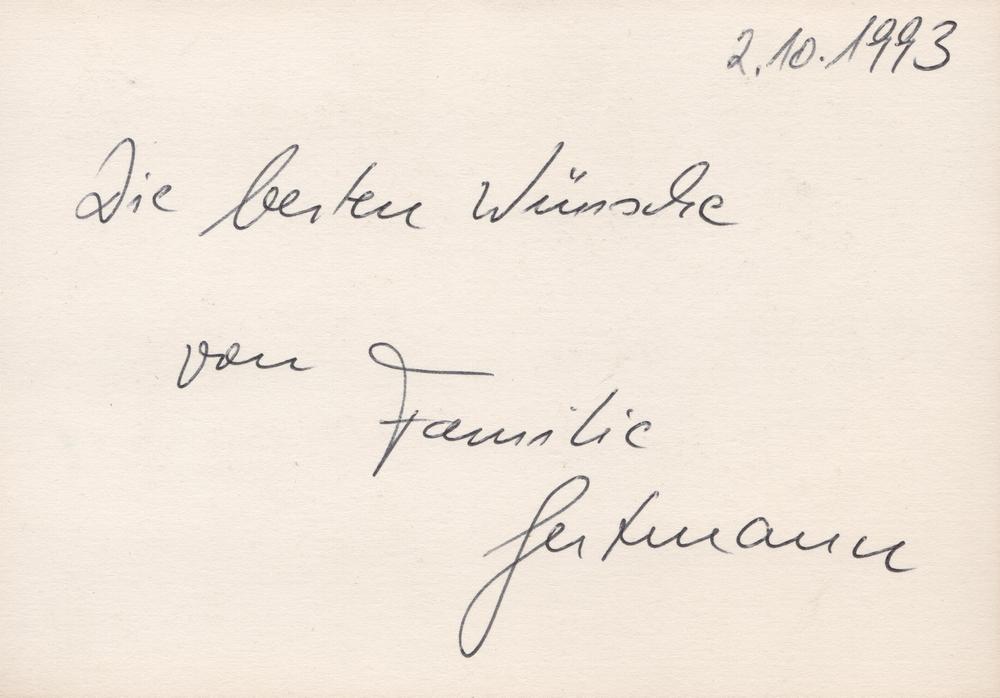 2.10.1993
Die besten Wünsche
von
Familie